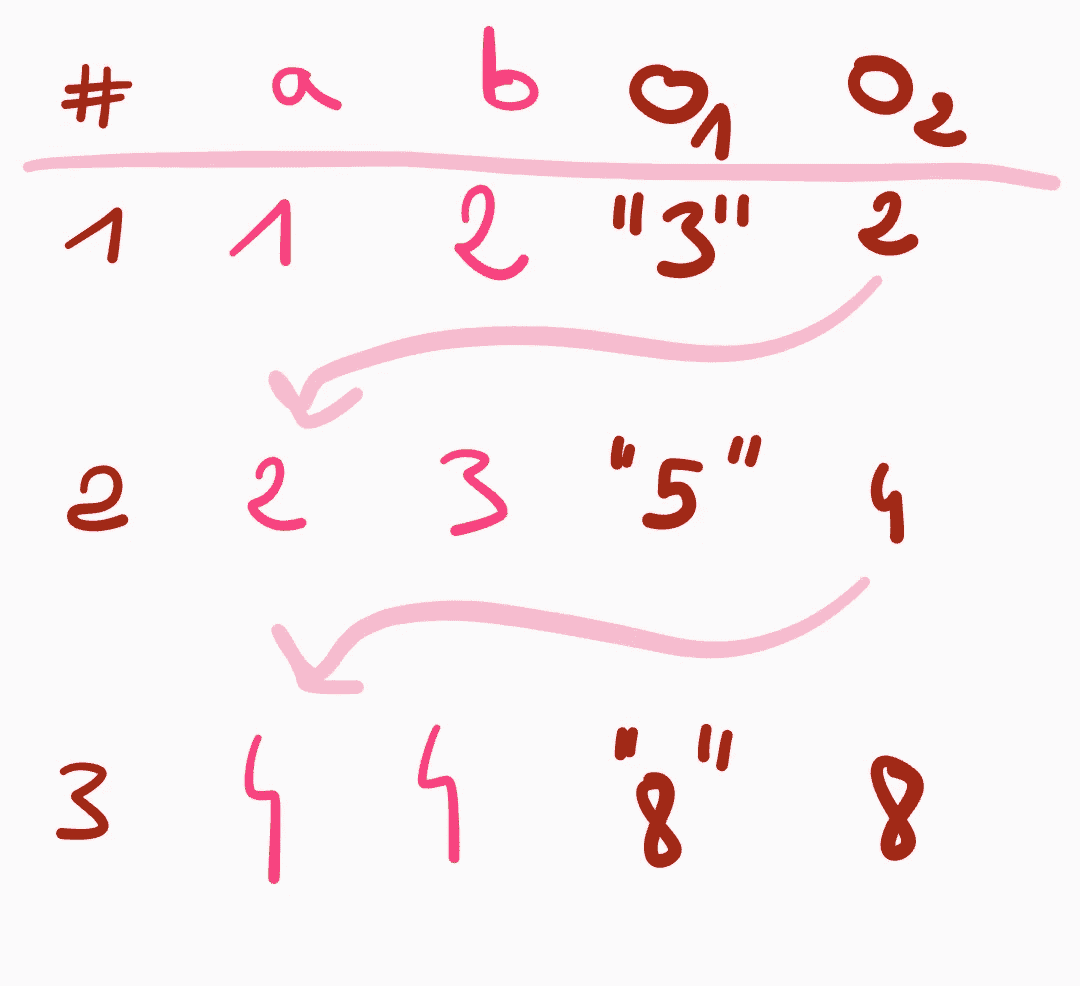 # a b O₁ O₂
1 1 2 "3" 2
2 2 3 "5" 4
3 4 4 "8" 8